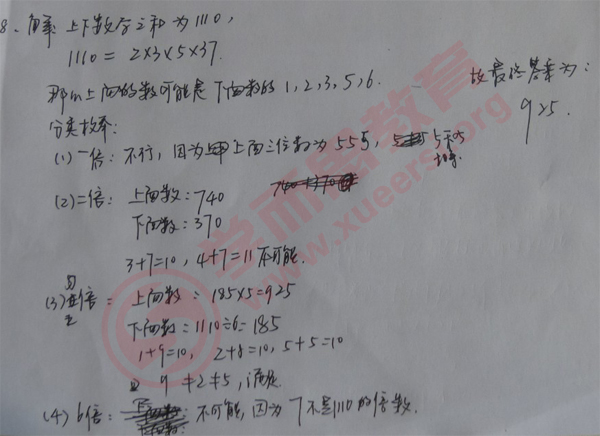 8、解 上下数字之和为1110,
1110 = 2×3×5×37.
那么上面的数可能是下面数的1,2,3,5,6.
故最终答案为:
925.
分类枚举:
(1)一倍: 不行, 因为上面三位数为555, 5和5
(2)二倍: 上面数:740
下面数:370
3+7=10, 4+7=11不可能.
(3)五倍: 上面数: 185×5=925
下面数:1110÷6=185
1+9=10, 2+8=10, 5+5=10
9≠2≠5, 满足
(4)6倍: 不可能, 因为7不是1110的倍数.
学而思教育
www.xueersi.org